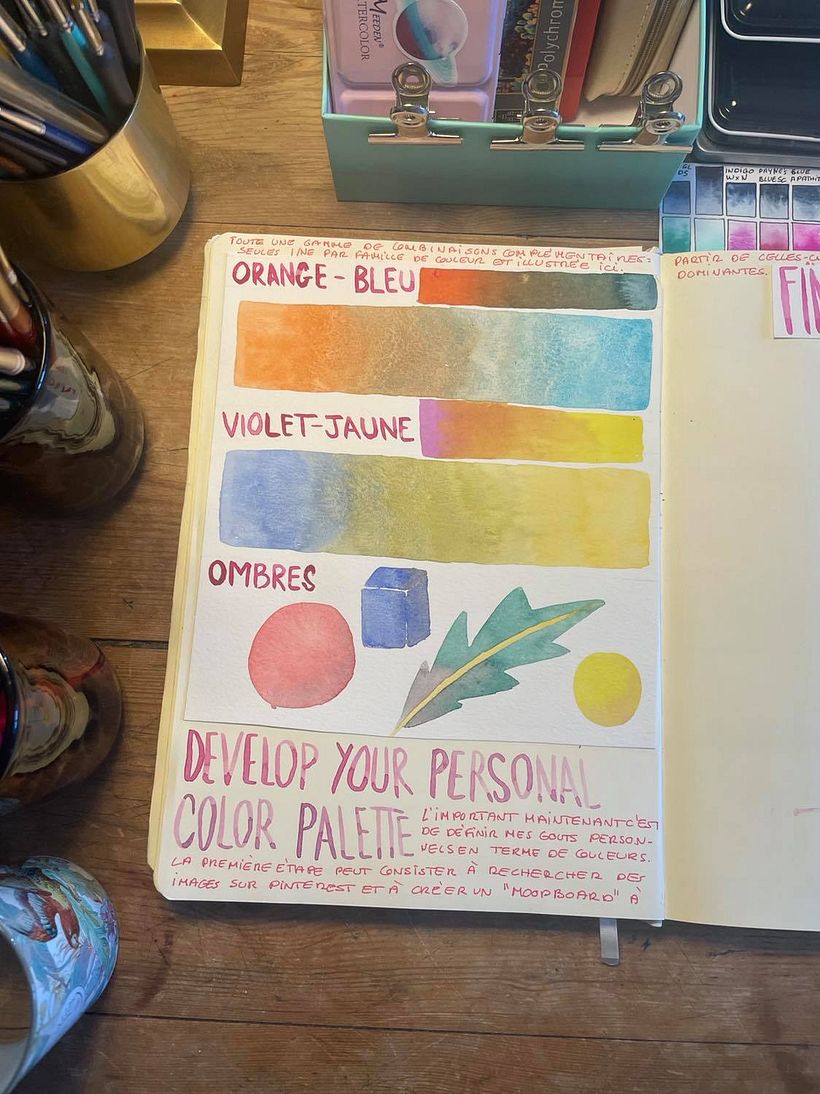 MEEDEN
WATERCOLOR
Polychrom
INDIGO PAYNES BLUE
W&N BLUESC APATHIT
TOUTE UNE GAMME DE COMBINAISONS COMPLÉMENTAIRES -
SEULES 1/NE PAR FAMILLE DE COULEUR ET ILLUSTRÉE ICI.
ORANGE - BLEU
VIOLET-JAUNE
OMBRES
DEVELOP YOUR PERSONAL
COLOR PALETTE
L'IMPORTANT MAINTENANT C'EST
DE DÉFINIR MES GOUTS PERSON-
NELS EN TERME DE COULEURS.
LA PREMIÈRE ÉTAPE PEUT CONSISTER À RECHERCHER DES
IMAGES SUR PINTEREST ET À CRÉER UN "MOODBOARD" À
PARTIR DE CELLES-CI
DOMINANTES.
FIN